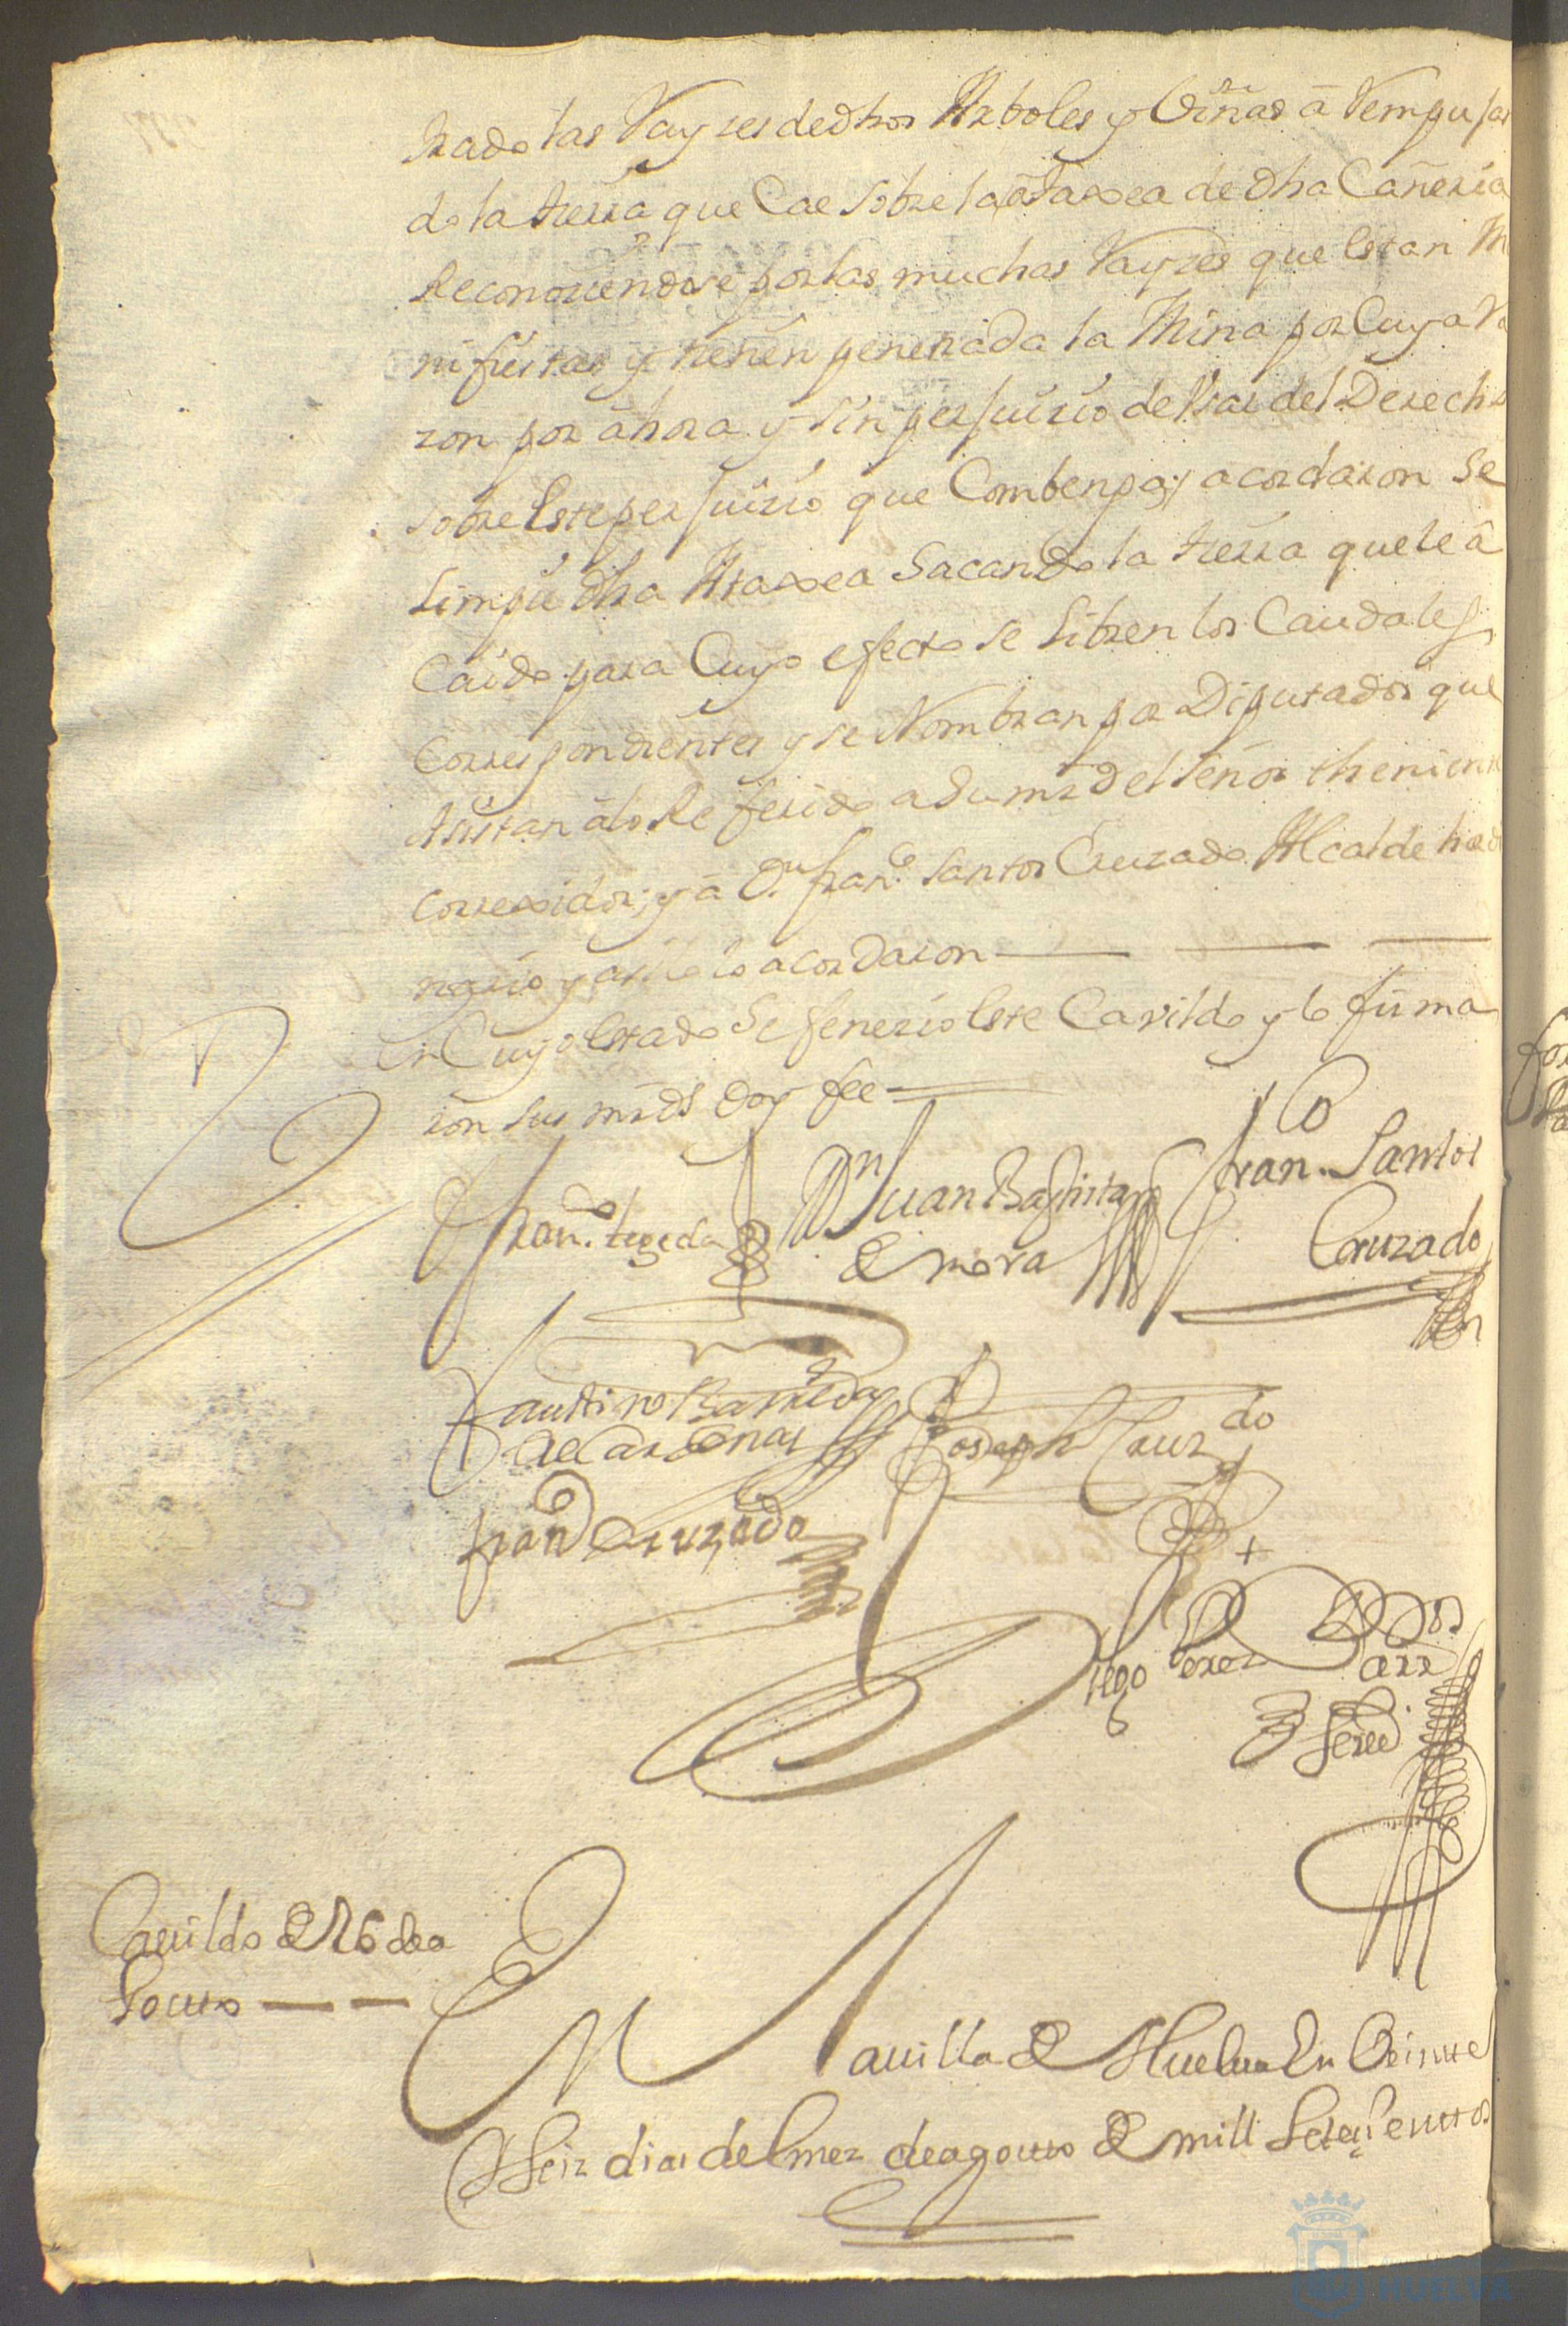 trado las Rayzes de dhos Arboles y Viñas â Rempujar
do la tierra que Cae sobre la ataxea de dha Cañeria
Reconoziendose por las muchas Rayzes que estan Ma
nifiestas y tienen penetrada la Mina por Cuya Ra
zon por âhora y sin perjuizio de Usar del Derecho
sobre Este perjuizio que Combenga; acordaron Se
Limpie dha Ataxea Sacando la tierra que le â
Caido para Cuyo efecto se Libren los Caudales
Correspondientes y se Nombran por Diputados que
Asistan âlo Referido a Su mrd del señor theniente
Correxidor; y â Dn. Franco. Santos Cruzado Alcalde hordi
nario y asi lo acordaron
En Cuyo Estado Se fenezio Este Cavildo y lo firma
ron sus mrds Doy fee
Franco. tegeda
Dn Juan Baptista
de mora
Franco. Santos
Cruzado
Faustino Barreda
de Cardenas
Joseph Cruzdo
Franco Cruzado
Diego Perez
Cavildo de 26 de a
gosto
En La villa de Huelva En Veinte
y Seis dias del mez de agosto de mill Setezientos
HUELVA